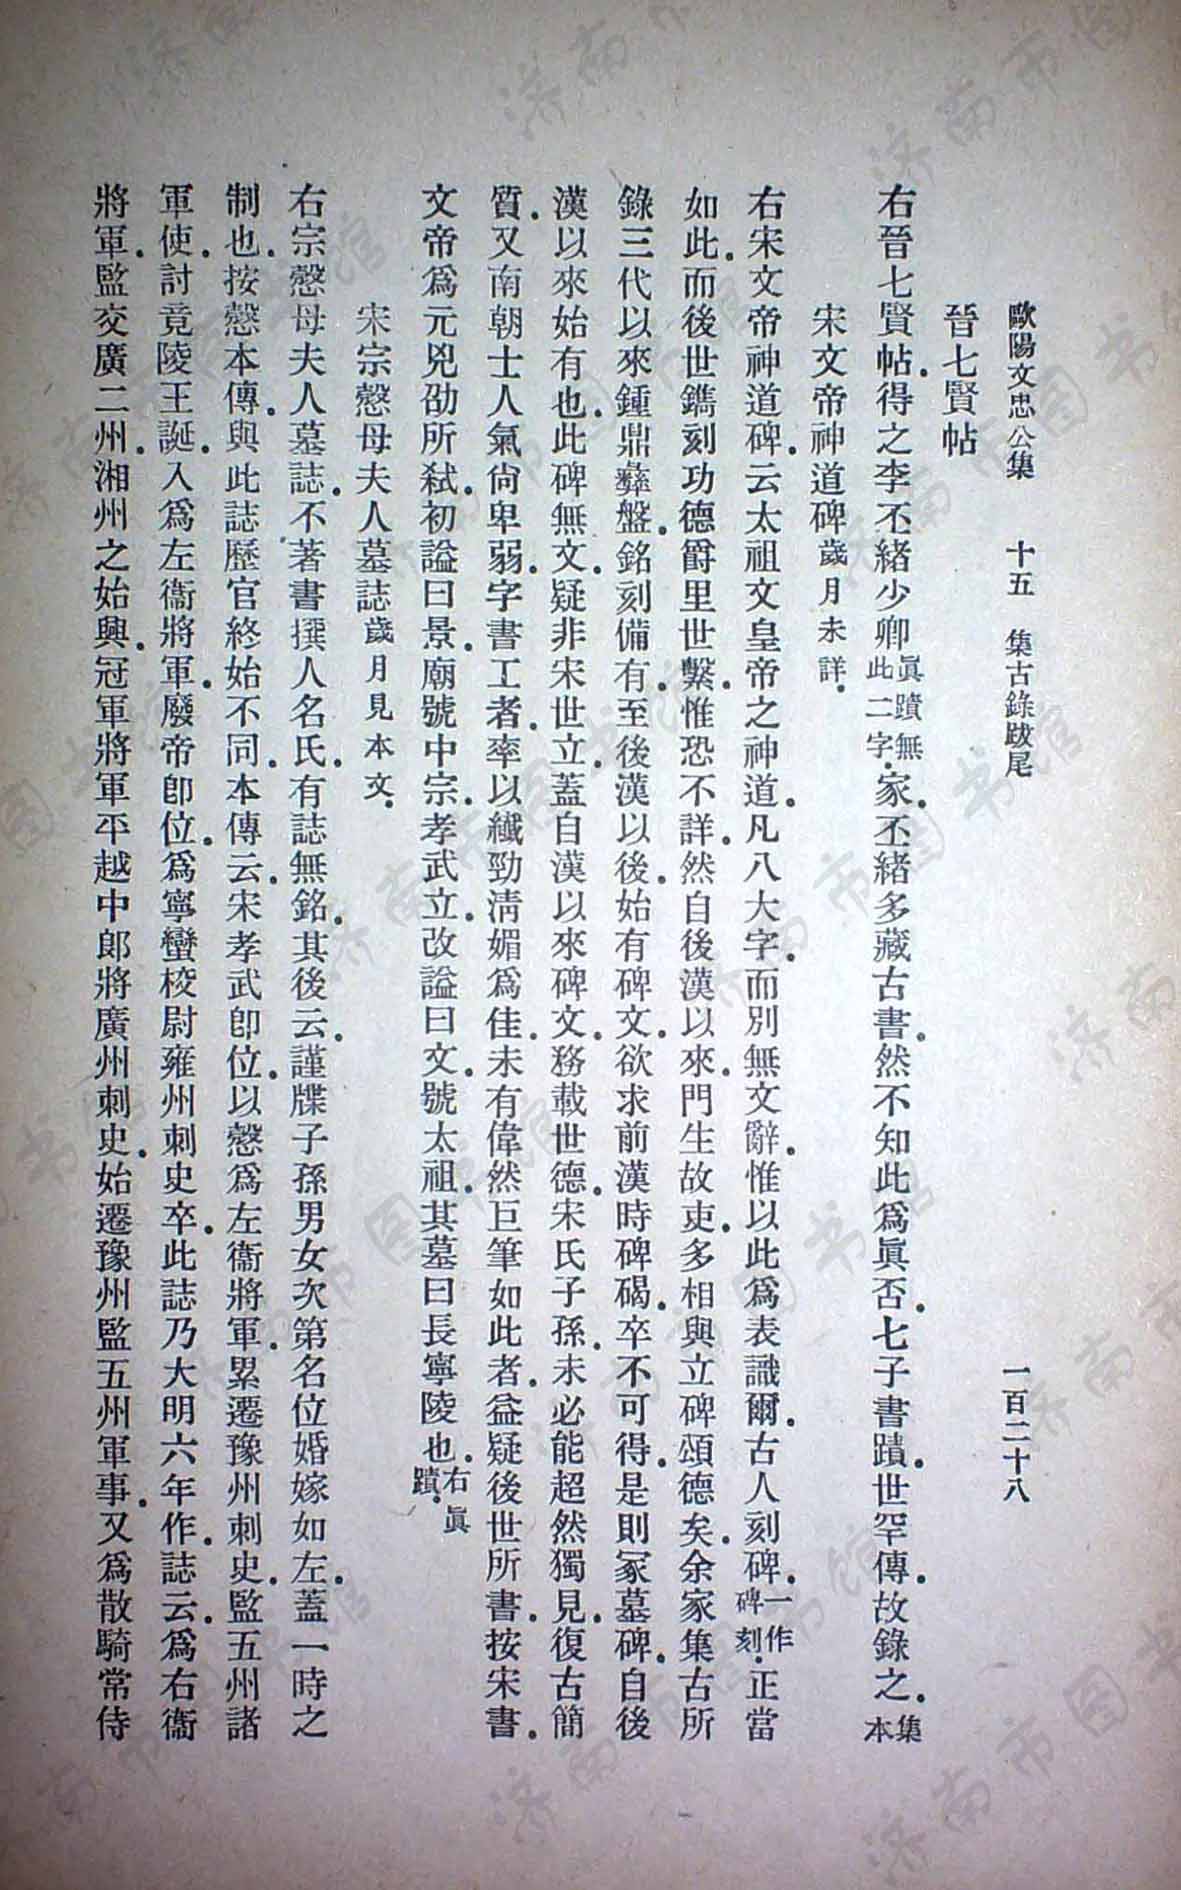 歐陽文忠公集　十五　集古錄跋尾　一百二十八
晉七賢帖
右晉七賢帖.得之李丕緒少卿眞蹟無此二字.家.丕緒多藏古書.然不知此爲眞否.七子書蹟.世罕傳.故錄之.集本
宋文帝神道碑歲月未詳.
右宋文帝神道碑.云太祖文皇帝之神道.凡八大字.而別無文辭.惟以此爲表識爾.古人刻碑.一作碑刻.正當
如此.而後世鐫刻功德爵里世繫.惟恐不詳.然自後漢以來.門生故吏.多相與立碑頌德矣.余家集古所
錄三代以來鍾鼎彝盤.銘刻備有.至後漢以後.始有碑文.欲求前漢時碑碣.卒不可得.是則冢墓碑.自後
漢以來始有也.此碑無文.疑非宋世立.蓋自漢以來碑文.務載世德.宋氏子孫.未必能超然獨見.復古簡
質.又南朝士人氣尙卑弱.字書工者.率以纖勁淸媚爲佳.未有偉然巨筆如此者.益疑後世所書.按宋書.
文帝爲元兇劭所弒.初謚曰景.廟號中宗.孝武立.改謚曰文.號太祖.其墓曰長寧陵也.右眞蹟.
宋宗愨母夫人墓誌歲月見本文.
右宗愨母夫人墓誌.不著書撰人名氏.有誌無銘.其後云.謹牒子孫男女次第名位婚嫁如左.蓋一時之
制也.按愨本傳.與此誌歷官終始不同.本傳云.宋孝武卽位.以愨爲左衞將軍.累遷豫州刺史.監五州諸
軍使.討竟陵王誕.入爲左衞將軍.廢帝卽位.爲寧蠻校尉雍州刺史卒.此誌乃大明六年作.誌云.爲右衞
將軍.監交廣二州.湘州之始興.冠軍將軍平越中郞將廣州刺史.始遷豫州監五州軍事.又爲散騎常侍